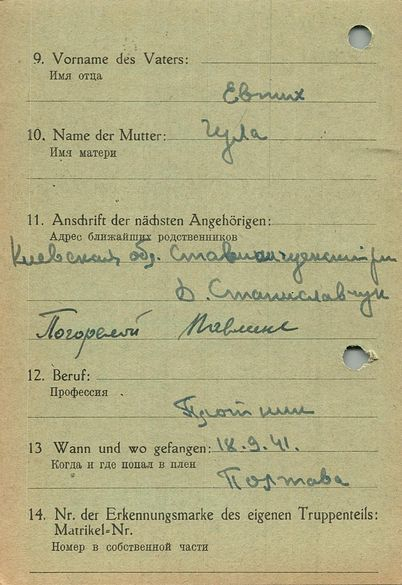 9. Vorname des Vaters:
Имя отца
Евтих
10. Name der Mutter:
Имя матери
11. Anschrift der nächsten Angehörigen:
Адрес ближайших родственников
Киевская обл.
д. Станиславчук
Погорелой
12. Beruf:
Профессия
Плотник
13 Wann und wo gefangen: 18.9.41.
Когда и где попал в плен
Полтава
14. Nr. der Erkennungsmarke des eigenen Truppenteils:
Matrikel-Nr.
Номер в собственной части